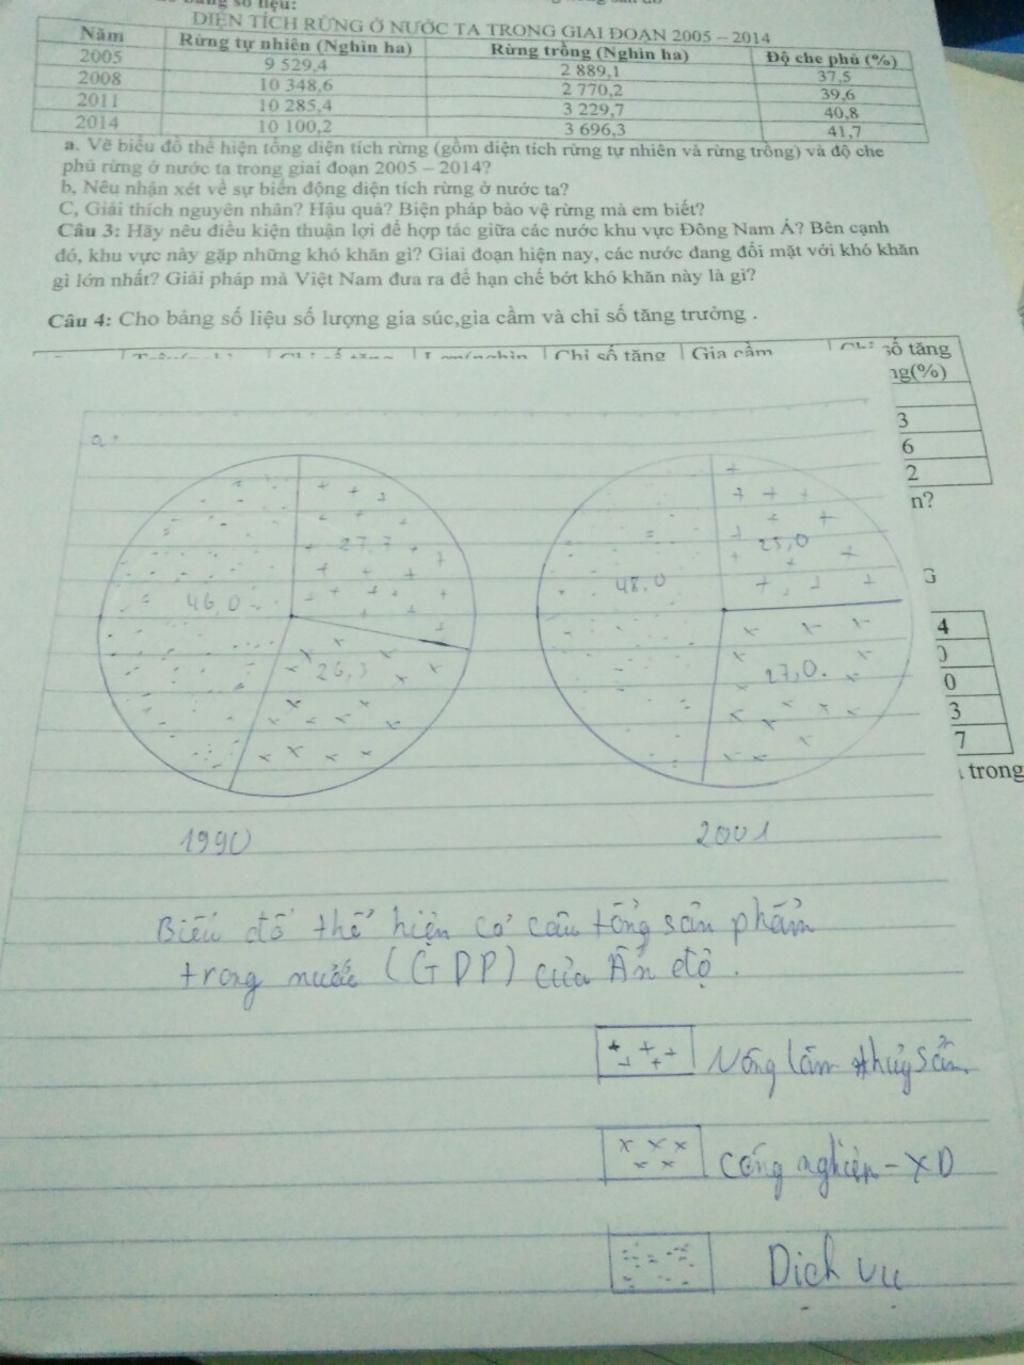 bảng số liệu:
DIỆN TÍCH RỪNG Ở NƯỚC TA TRONG GIAI ĐOẠN 2005 – 2014
Năm Rừng tự nhiên (Nghìn ha) Rừng trồng (Nghìn ha) Độ che phủ (%)
2005 9 529,4 2 889,1 37,5
2008 10 348,6 2 770,2 39,6
2011 10 285,4 3 229,7 40,8
2014 10 100,2 3 696,3 41,7
a. Vẽ biểu đồ thể hiện tổng diện tích rừng (gồm diện tích rừng tự nhiên và rừng trồng) và độ che
phủ rừng ở nước ta trong giai đoạn 2005 – 2014?
b, Nêu nhận xét về sự biến động diện tích rừng ở nước ta?
C, Giải thích nguyên nhân? Hậu quả? Biện pháp bảo vệ rừng mà em biết?
Câu 3: Hãy nêu điều kiện thuận lợi để hợp tác giữa các nước khu vực Đông Nam Á? Bên cạnh
đó, khu vực này gặp những khó khăn gì? Giai đoạn hiện nay, các nước đang đối mặt với khó khăn
gì lớn nhất? Giải pháp mà Việt Nam đưa ra để hạn chế bớt khó khăn này là gì?
Câu 4: Cho bảng số liệu số lượng gia súc,gia cầm và chỉ số tăng trưởng .
Chỉ số tăng Gia cầm số tăng
ng(%)
3
6
2
n?
G
4
0
3
7
trong
a,
27,7 25,0
46,0 48,0
26,3 27,0.
1990 2001
Biểu đồ thể hiện cơ cấu tổng sản phẩm
trong nước (GDP) của Ấn độ .
Nông lâm thủy sản
công nghiệp - XD
Dịch vụ